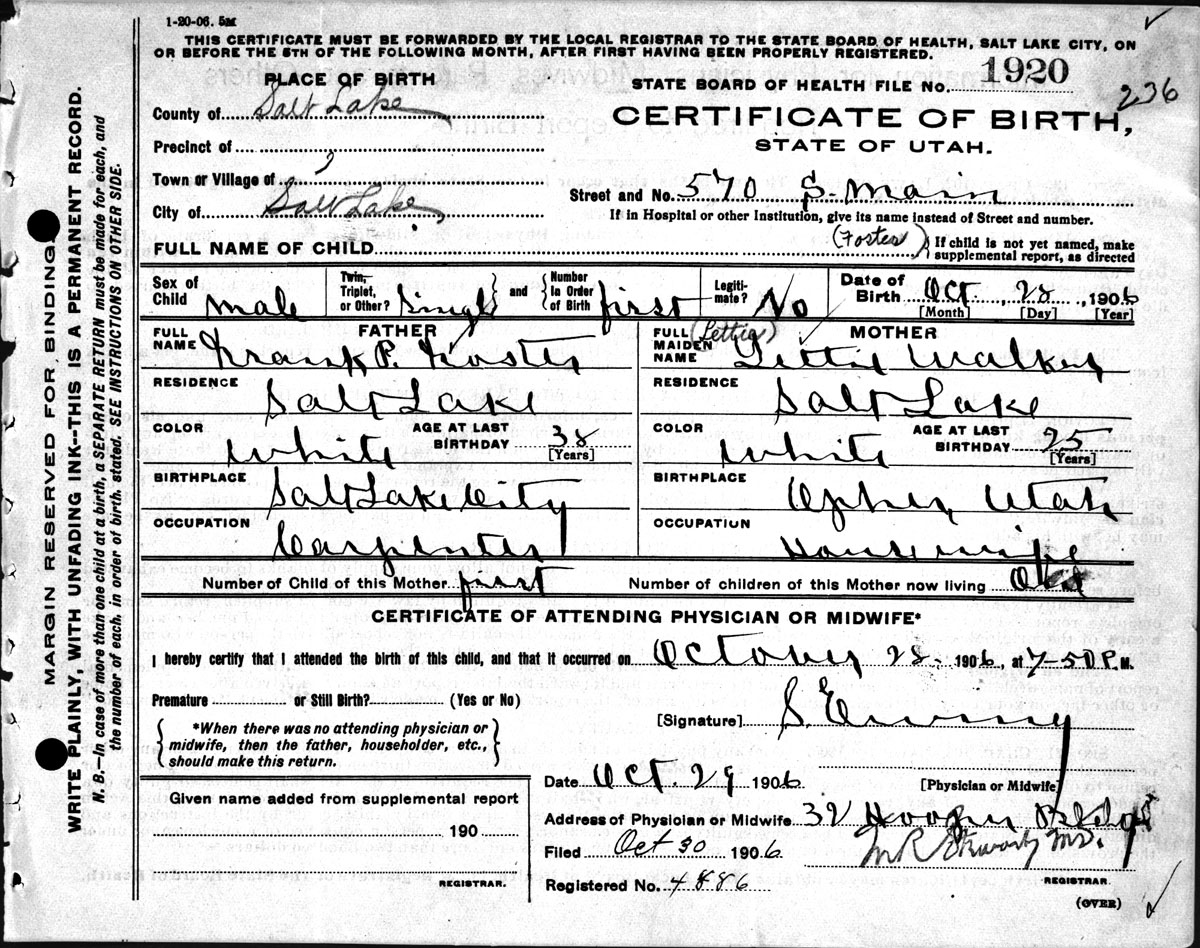 1-20-06. 5M
THIS CERTIFICATE MUST BE FORWARDED BY THE LOCAL REGISTRAR TO THE STATE BOARD OF HEALTH, SALT LAKE CITY, ON
OR BEFORE THE 5TH OF THE FOLLOWING MONTH, AFTER FIRST HAVING BEEN PROPERLY REGISTERED.
PLACE OF BIRTH
STATE BOARD OF HEALTH FILE No. 1920
236
County of Salt Lake
CERTIFICATE OF BIRTH,
Precinct of
STATE OF UTAH.
Town or Village of
Street and No. 570 S. Main
City of Salt Lake
If in Hospital or other Institution, give its name instead of Street and number.
FULL NAME OF CHILD (Foster) } If child is not yet named, make
supplemental report, as directed
Sex of Child male
Twin, Triplet, or Other? Single
and Number in Order of Birth first
Legitimate? No
Date of Birth Oct. 28, 1906
[Month] [Day] [Year]
FATHER
FULL NAME Frank P. Foster
MOTHER
FULL MAIDEN NAME (Lettie) Lettie Walker
RESIDENCE Salt Lake
RESIDENCE Salt Lake
COLOR White AGE AT LAST BIRTHDAY 38 [Years]
COLOR White AGE AT LAST BIRTHDAY 25 [Years]
BIRTHPLACE Salt Lake City
BIRTHPLACE Ophir, Utah
OCCUPATION Carpenter
OCCUPATION Housewife
Number of Child of this Mother first
Number of children of this Mother now living
CERTIFICATE OF ATTENDING PHYSICIAN OR MIDWIFE*
I hereby certify that I attended the birth of this child, and that it occurred on October 28. 1906, at 7-50 P.M.
Premature or Still Birth? (Yes or No)
[Signature] S.
{ *When there was no attending physician or
midwife, then the father, householder, etc.,
should make this return. }
[Physician or Midwife]
Date Oct. 29 1906
Address of Physician or Midwife 32 Hooper Bldg
Filed Oct 30 1906
M R Stewart MD.
REGISTRAR.
Registered No. 4886
(OVER)
Given name added from supplemental report
190
REGISTRAR.
MARGIN RESERVED FOR BINDING.
WRITE PLAINLY, WITH UNFADING INK--THIS IS A PERMANENT RECORD.
N. B.—In case of more than one child at a birth, a SEPARATE RETURN must be made for each, and
the number of each, in order of birth, stated. SEE INSTRUCTIONS ON OTHER SIDE.